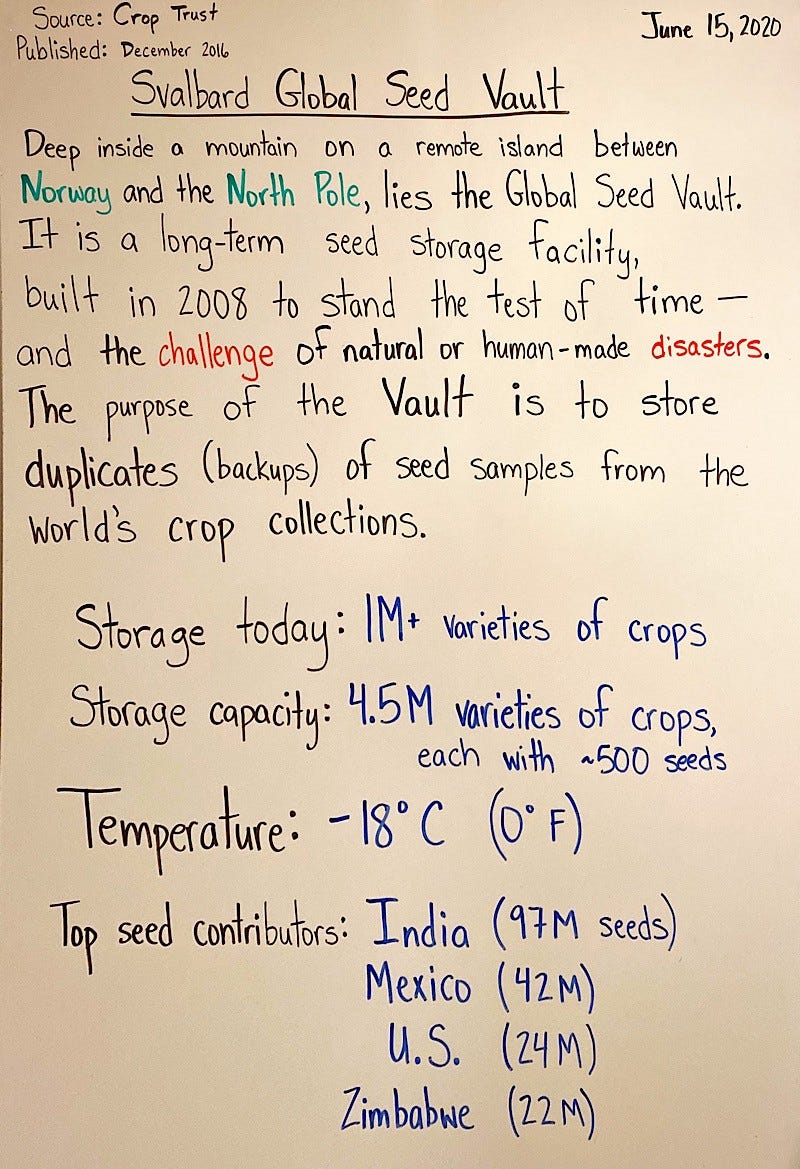 Source: Crop Trust
June 15, 2020
Published: December 2016
Svalbard Global Seed Vault
Deep inside a mountain on a remote island between
Norway and the North Pole, lies the Global Seed Vault.
It is a long-term seed storage facility,
built in 2008 to stand the test of time —
and the challenge of natural or human-made disasters.
The purpose of the Vault is to store
duplicates (backups) of seed samples from the
world's crop collections.
Storage today: 1M+ varieties of crops
Storage capacity: 4.5M varieties of crops,
each with ~500 seeds
Temperature: -18° C (0° F)
Top seed contributors: India (97M seeds)
Mexico (42M)
U.S. (24M)
Zimbabwe (22M)